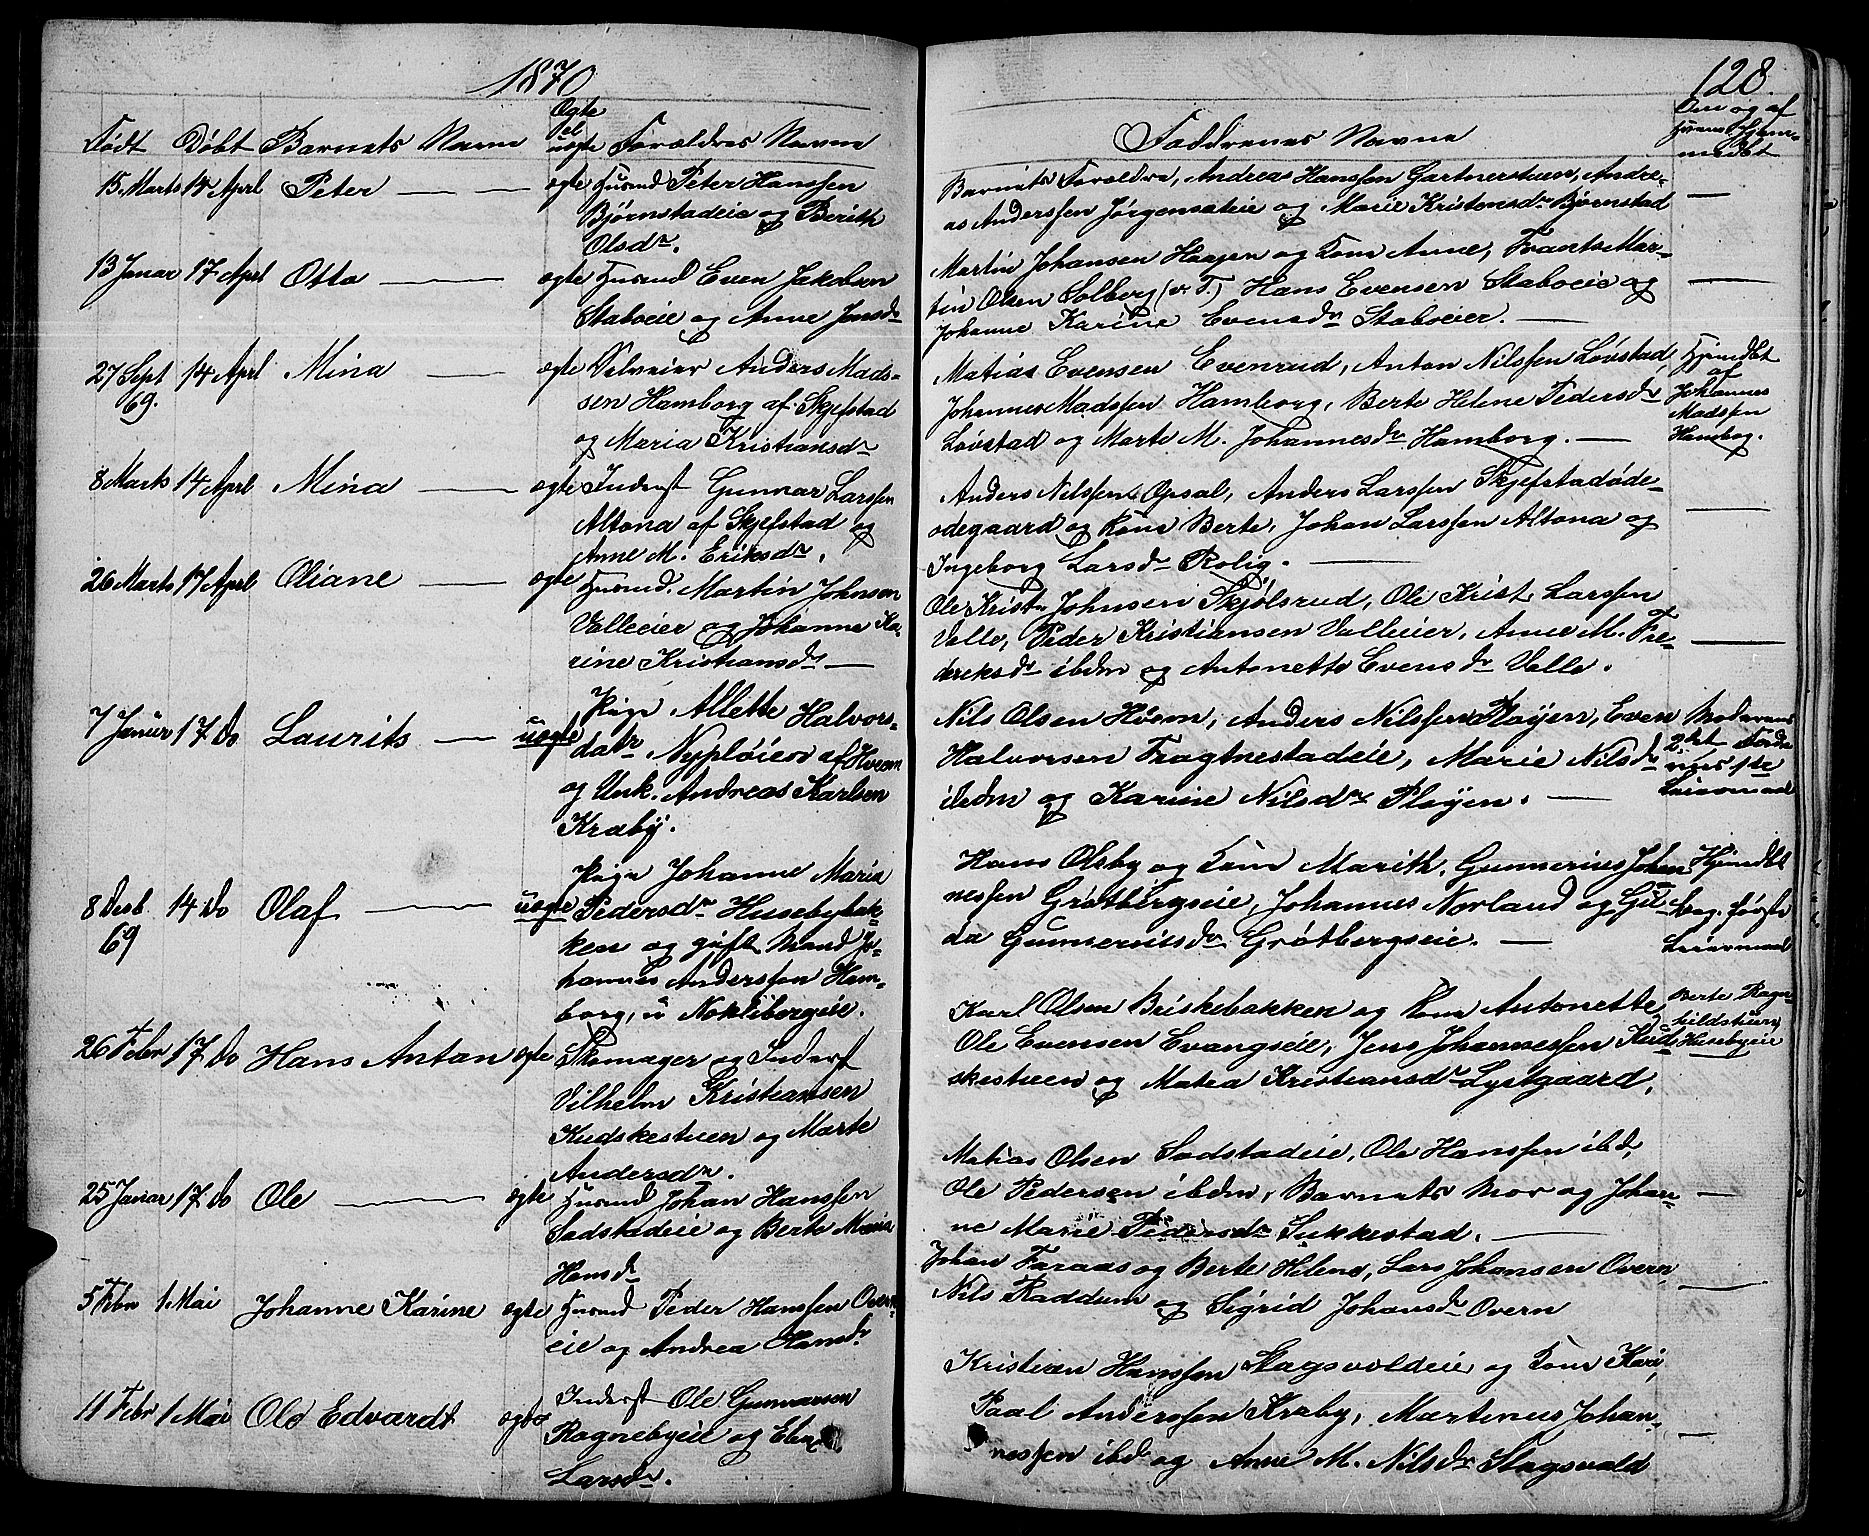 1870
Født Døbt Barnets Navn Ægte el uægte Forældres Navn
15 Marts 14 April Peter — ægte Husmd Peter Hanssen
Bjørnstadeie og Berith
Olsdr.
13 Januar 17 April Otto — ægte Husmd Even Jakobsen
Staboeie og Anne Jensdr
27 Sept 69. 14 April Mina — ægte Selveier Anders Mads-
sen Hamborg af Skjefstad
og Maria Kristiansdr
8 Marts 14 April Mina — ægte Inderst Gunnar Larssen
Altona af Skjefstad og
Anne M. Eriksdr.
26 Marts 17 April Oliane — ægte Husmd. Martin Johnsen
Valleeier og Johanne Ka-
rine Kristiansdr —
7 Januar 17 do Laurits — uægte Pige Allette Halvors-
datr Nypløieie af Hveem
og Unk. Andreas Karlsen
Kraby.
8 Decb 69 14 do Olaf — uægte Pige Johanne Maria
Pedersdr Husebybak-
ken og gift Mand Jo-
hannes Anderssen Ham-
borg, u Noklebergeie.
26 Febr 17 do Hans Anton ægte Skomager og Inderst
Vilhelm Kristiansen
Kudskestuen og Marte
Andersdr.
25 Januar 17 do Ole — ægte Husmd Johan Hanssen
Sadstadeie og Berte Maria
Hansdr
5 Febr 1 Mai Johanne Karine ægte Husmd Peder Hanssen Overn-
eie og Andrea Hansdr
11 Febr 1 Mai Ole Edvardt ægte Inderst Ole Gunnarsen
Ragnebyeie og
Larsdr.
128.
Faddrenes Navne Om og af hvem Hjem-
medbt
Barnets Forældre, Andreas Hanssen Gartnerstuen, Andre-
as Anderssen Jørgensateie og Marie Kristensdr Bjørnstad —
Martin Johansen Haajen og Kone Anne, Frants Mar-
tin Olsen Solberg (v. T.) Hans Evensen Staboeie og —
Johanne Karine Evensdr Staboeier. —
Matias Evensen Evenrud, Anton Nilssen Løvstad, Hjemdbt
af
Johannes Madssen Hamborg, Berte Helene Pedersdr Johannes
Madssen
Løvstad og Marte M. Johannesdr Hamborg. — Hamborg.
Anders Nilssen Opsal, Anders Larssen Skjefstadøde-
ødegaard og Kone Berte, Johan Larssen Altona og —
Ingeborg Larsdr Rolig. —
Ole Kristn Johnsen Skjølsrud, Ole Krist. Larssen
Valle, Peder Kristiansen Valleeier, Anne M. Fre- —
dereksdr ibdm og Antonette Evensdr Valle.
Nils Olsen Hveem, Anders Nilssen Pløyen, Even Moderens
2det
Halvorsen Fragtnestadeie, Marie Nilsdr 1ste
ibdm og Karine Nilsdr Pløyen. — Leiermaal
Hans Olsby og Kone Marith, Gunnerius Johan- Hjemdbt
nessen Grøtbergseie, Johannes Norland og Gu- beg. første
da Gunneriusdr Grøtbergseie. — Leiermaal
Karl Olsen Briskebakken og Kone Antonette, Berte Ragn-
hildstuen
Ole Evensen Evangseie, Jens Johannessen Kud- Husebyeie
skestuen og Matea Kristiansdr Lystgaard,
Matias Olsen Sadstadeie, Ole Hanssen ibd,
Ole Pedersen ibdm, Barnets Mor og Johan- —
ne Marie Pedersdr Sukkestad. —
Johan Faraas og Berte Helene, Lars Johansen Overn,
Nils Raddum og Sigrid Johansdr Overn —
Kristian Hanssen Slagsvoldeie og Kone Kari,
Paal Anderssen Kraby, Martinus Johan-
nessen ibd og Anne M. Nilsdr Slagsvold —